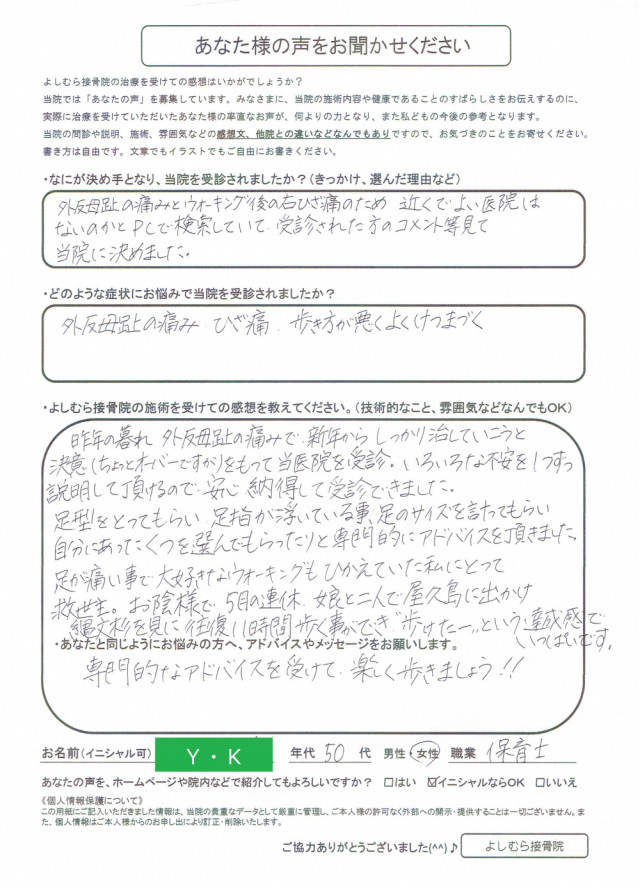 あなた様の声をお聞かせください
よしむら接骨院の治療を受けての感想はいかがでしょうか?
当院では「あなたの声」を募集しています。みなさまに、当院の施術内容や健康であることのすばらしさをお伝えするのに、
実際に治療を受けていただいたあなた様の率直なお声が、何よりの力となり、また私どもの今後の参考となります。
当院の問診や説明、施術、雰囲気などの感想文、他院との違いなどなんでもありですので、お気づきのことをお寄せください。
書き方は自由です。文章でもイラストでもご自由にお書きください。
・なにが決め手となり、当院を受診されましたか?(きっかけ、選んだ理由など)
外反母趾の痛みとウォーキング後の右ひざ痛のため 近くでよい医院は
ないのかとPCで検索していて、受診された方のコメント等見て
当院に決めました。
・どのような症状にお悩みで当院を受診されましたか?
外反母趾の痛み、ひざ痛、歩き方が悪くよくけつまづく
・よしむら接骨院の施術を受けての感想を教えてください。(技術的なこと、雰囲気などなんでもOK)
昨年の暮れ 外反母趾の痛みで、新年から しっかり治していこうと
決意(ちょっとオーバーですが)をもって当医院を受診。いろいろな不安を1つずつ
説明して頂けるので、安心 納得して受診できました。
足型をとってもらい、足指が浮いている事、足のサイズを計ってもらい
自分にあったくつを選んでもらったりと専門的にアドバイスを頂きました。
足が痛い事で大好きなウォーキングもひかえていた私にとって
救世主。お陰様で、5月の連休、娘と二人で屋久島に出かけ
縄文杉を見に往復11時間歩く事ができ"歩けたー"という達成感で
いっぱいです。
・あなたと同じようにお悩みの方へ、アドバイスやメッセージをお願いします。
専門的なアドバイスを受けて、楽しく歩きましょう!!
お名前(イニシャル可) Y・K 年代 50 代 男性・女性 職業 保育士
あなたの声を、ホームページや院内などで紹介してもよろしいですか? □はい ☑イニシャルならOK □いいえ
《個人情報保護について》
この用紙にご記入いただきました情報は、当院の貴重なデータとして厳重に管理し、ご本人様の許可なく外部への開示・提供することは一切ございません。ま
た、個人情報はご本人様からのお申し出により訂正・削除いたします。
ご協力ありがとうございました(^^)♪ よしむら接骨院